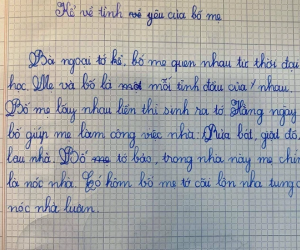 Kể về tình yêu của bố mẹ
Bà ngoại tớ kể, bố mẹ quen nhau từ thời đại
học. Mẹ và bố là mối tình đầu của nhau.
Bố mẹ lấy nhau liền thì sinh ra tớ. Hàng ngày
bố giúp mẹ làm công việc nhà: Rửa bát, giặt đồ,
lau nhà. Bố tớ bảo, trong nhà này mẹ chín
là nóc nhà. Có hôm bố mẹ tớ cãi lộn nhà tung
nóc nhà luôn.